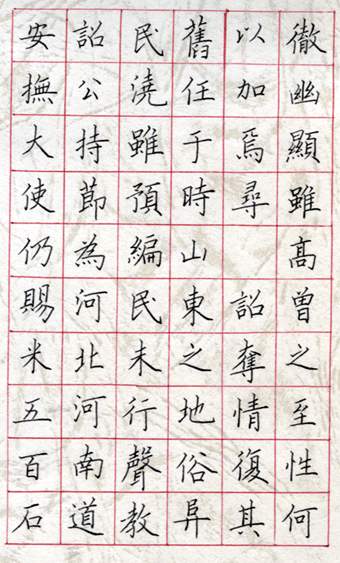 徹幽顯雖高曾之至性何
以加焉尋 詔奪情復其
舊任于時山東之地俗异
民澆雖預編民未行聲教
詔公持節為河北河南道
安撫大使仍賜米五百石